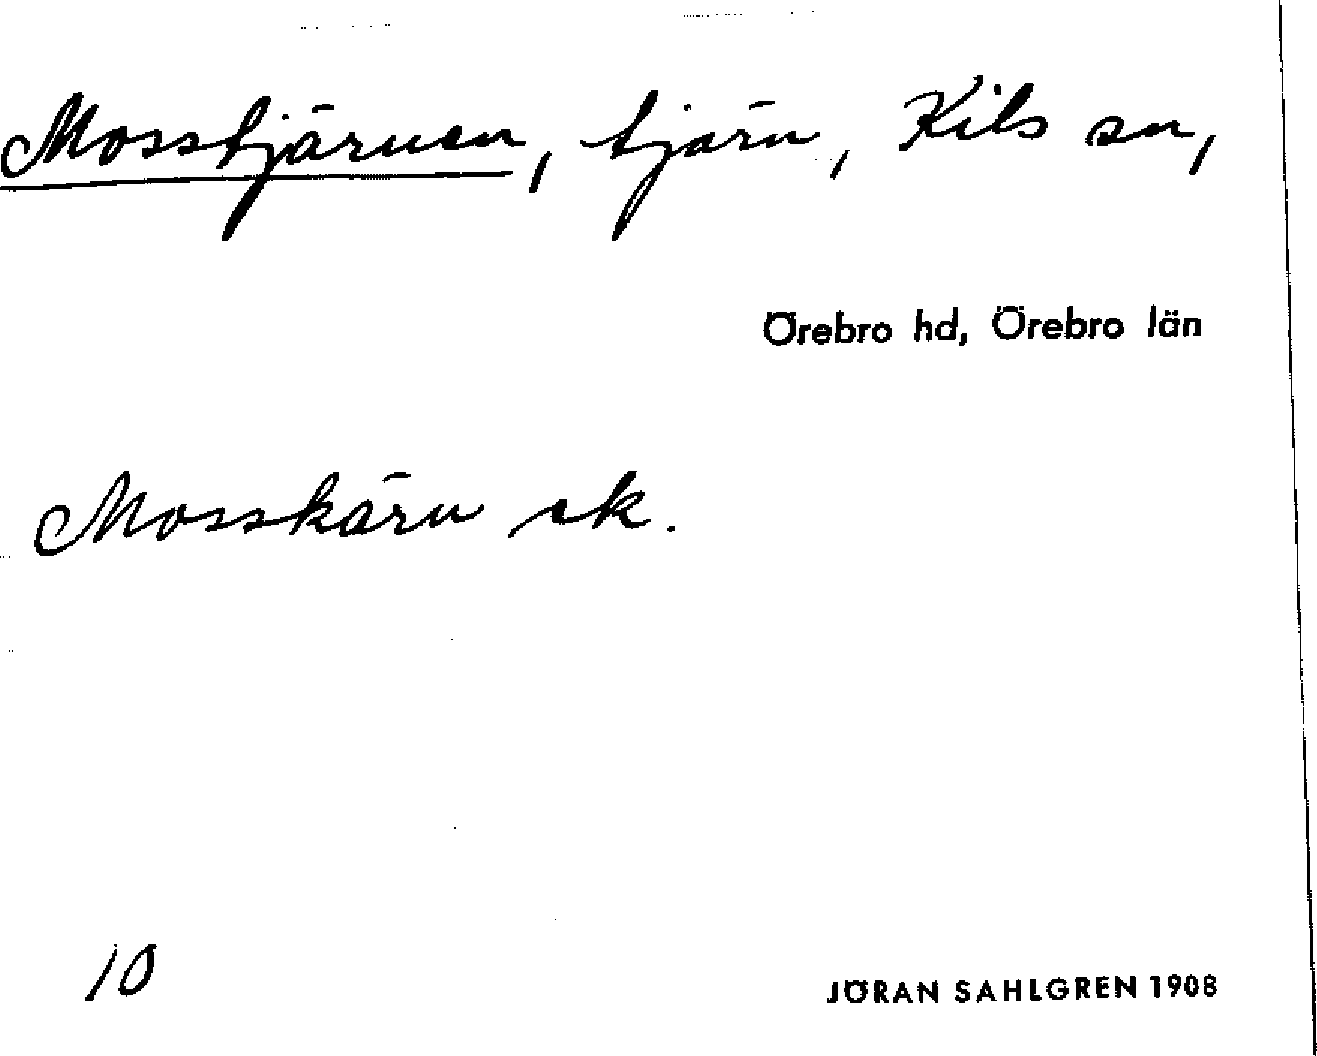 Mosstjärnen, tjärn, Kils sn,
Örebro hd, Örebro län
Mosskärn ek.
10
JÖRAN SAHLGREN 1908